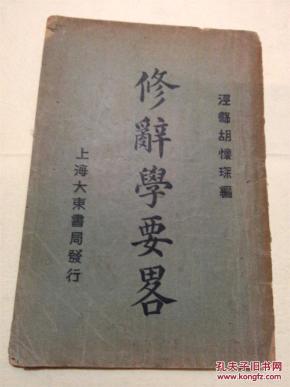 涇縣胡懷琛編
修辭學要畧
上海大東書局發行
孔夫子旧书网